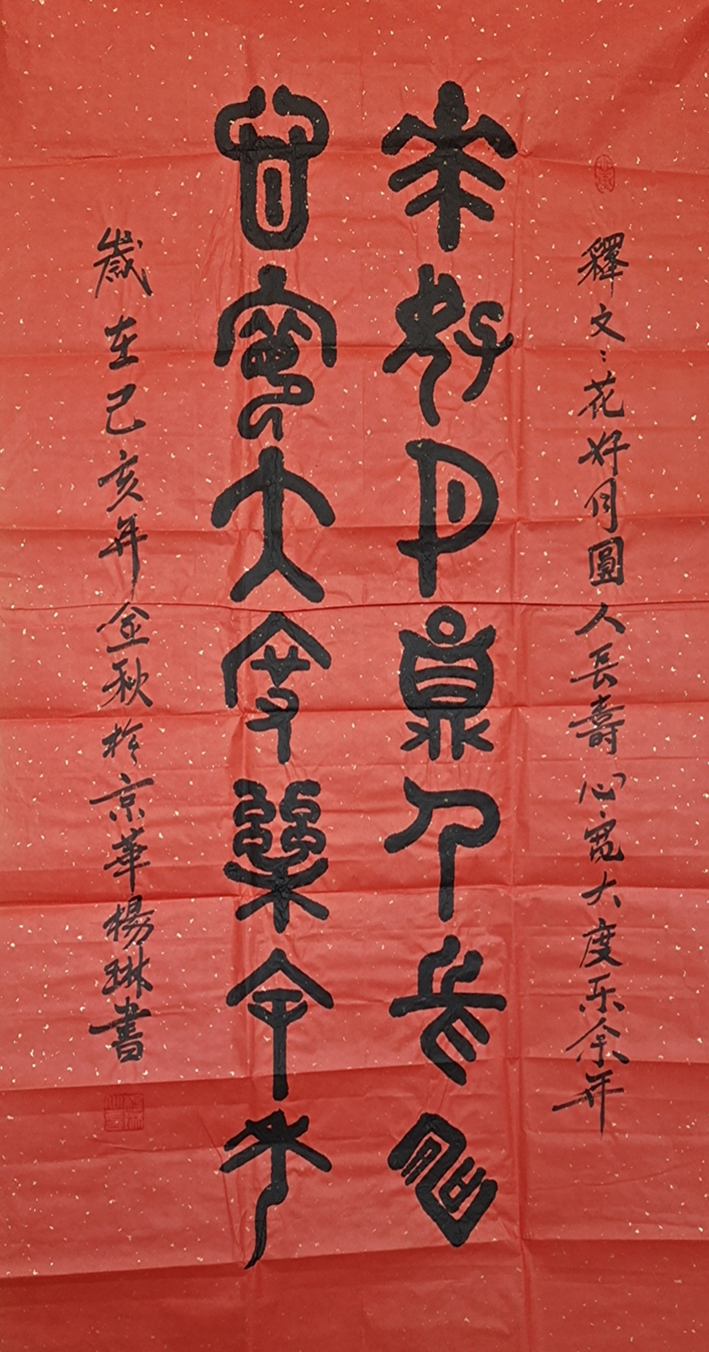 釋文：花好月圓人長壽心寬大度乐余年
花好月圓人長壽
心寬大度樂余年
歲在己亥年金秋於京華楊琳書